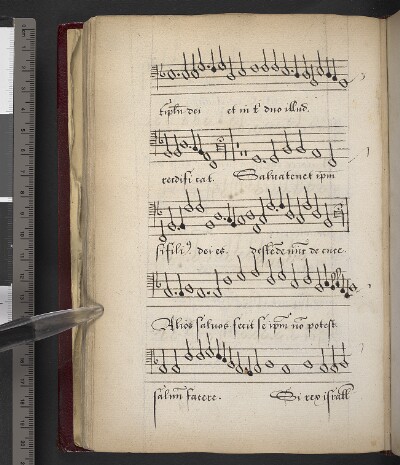 tēplū dei et in tʳ duo illud.
reedificat. Saluatemet ipm
si fili⁹ dei es. deſcēde nūc de cruce.
Alios saluos fecit se ipm nō potest.
saluū facere. Si rex iſraēl